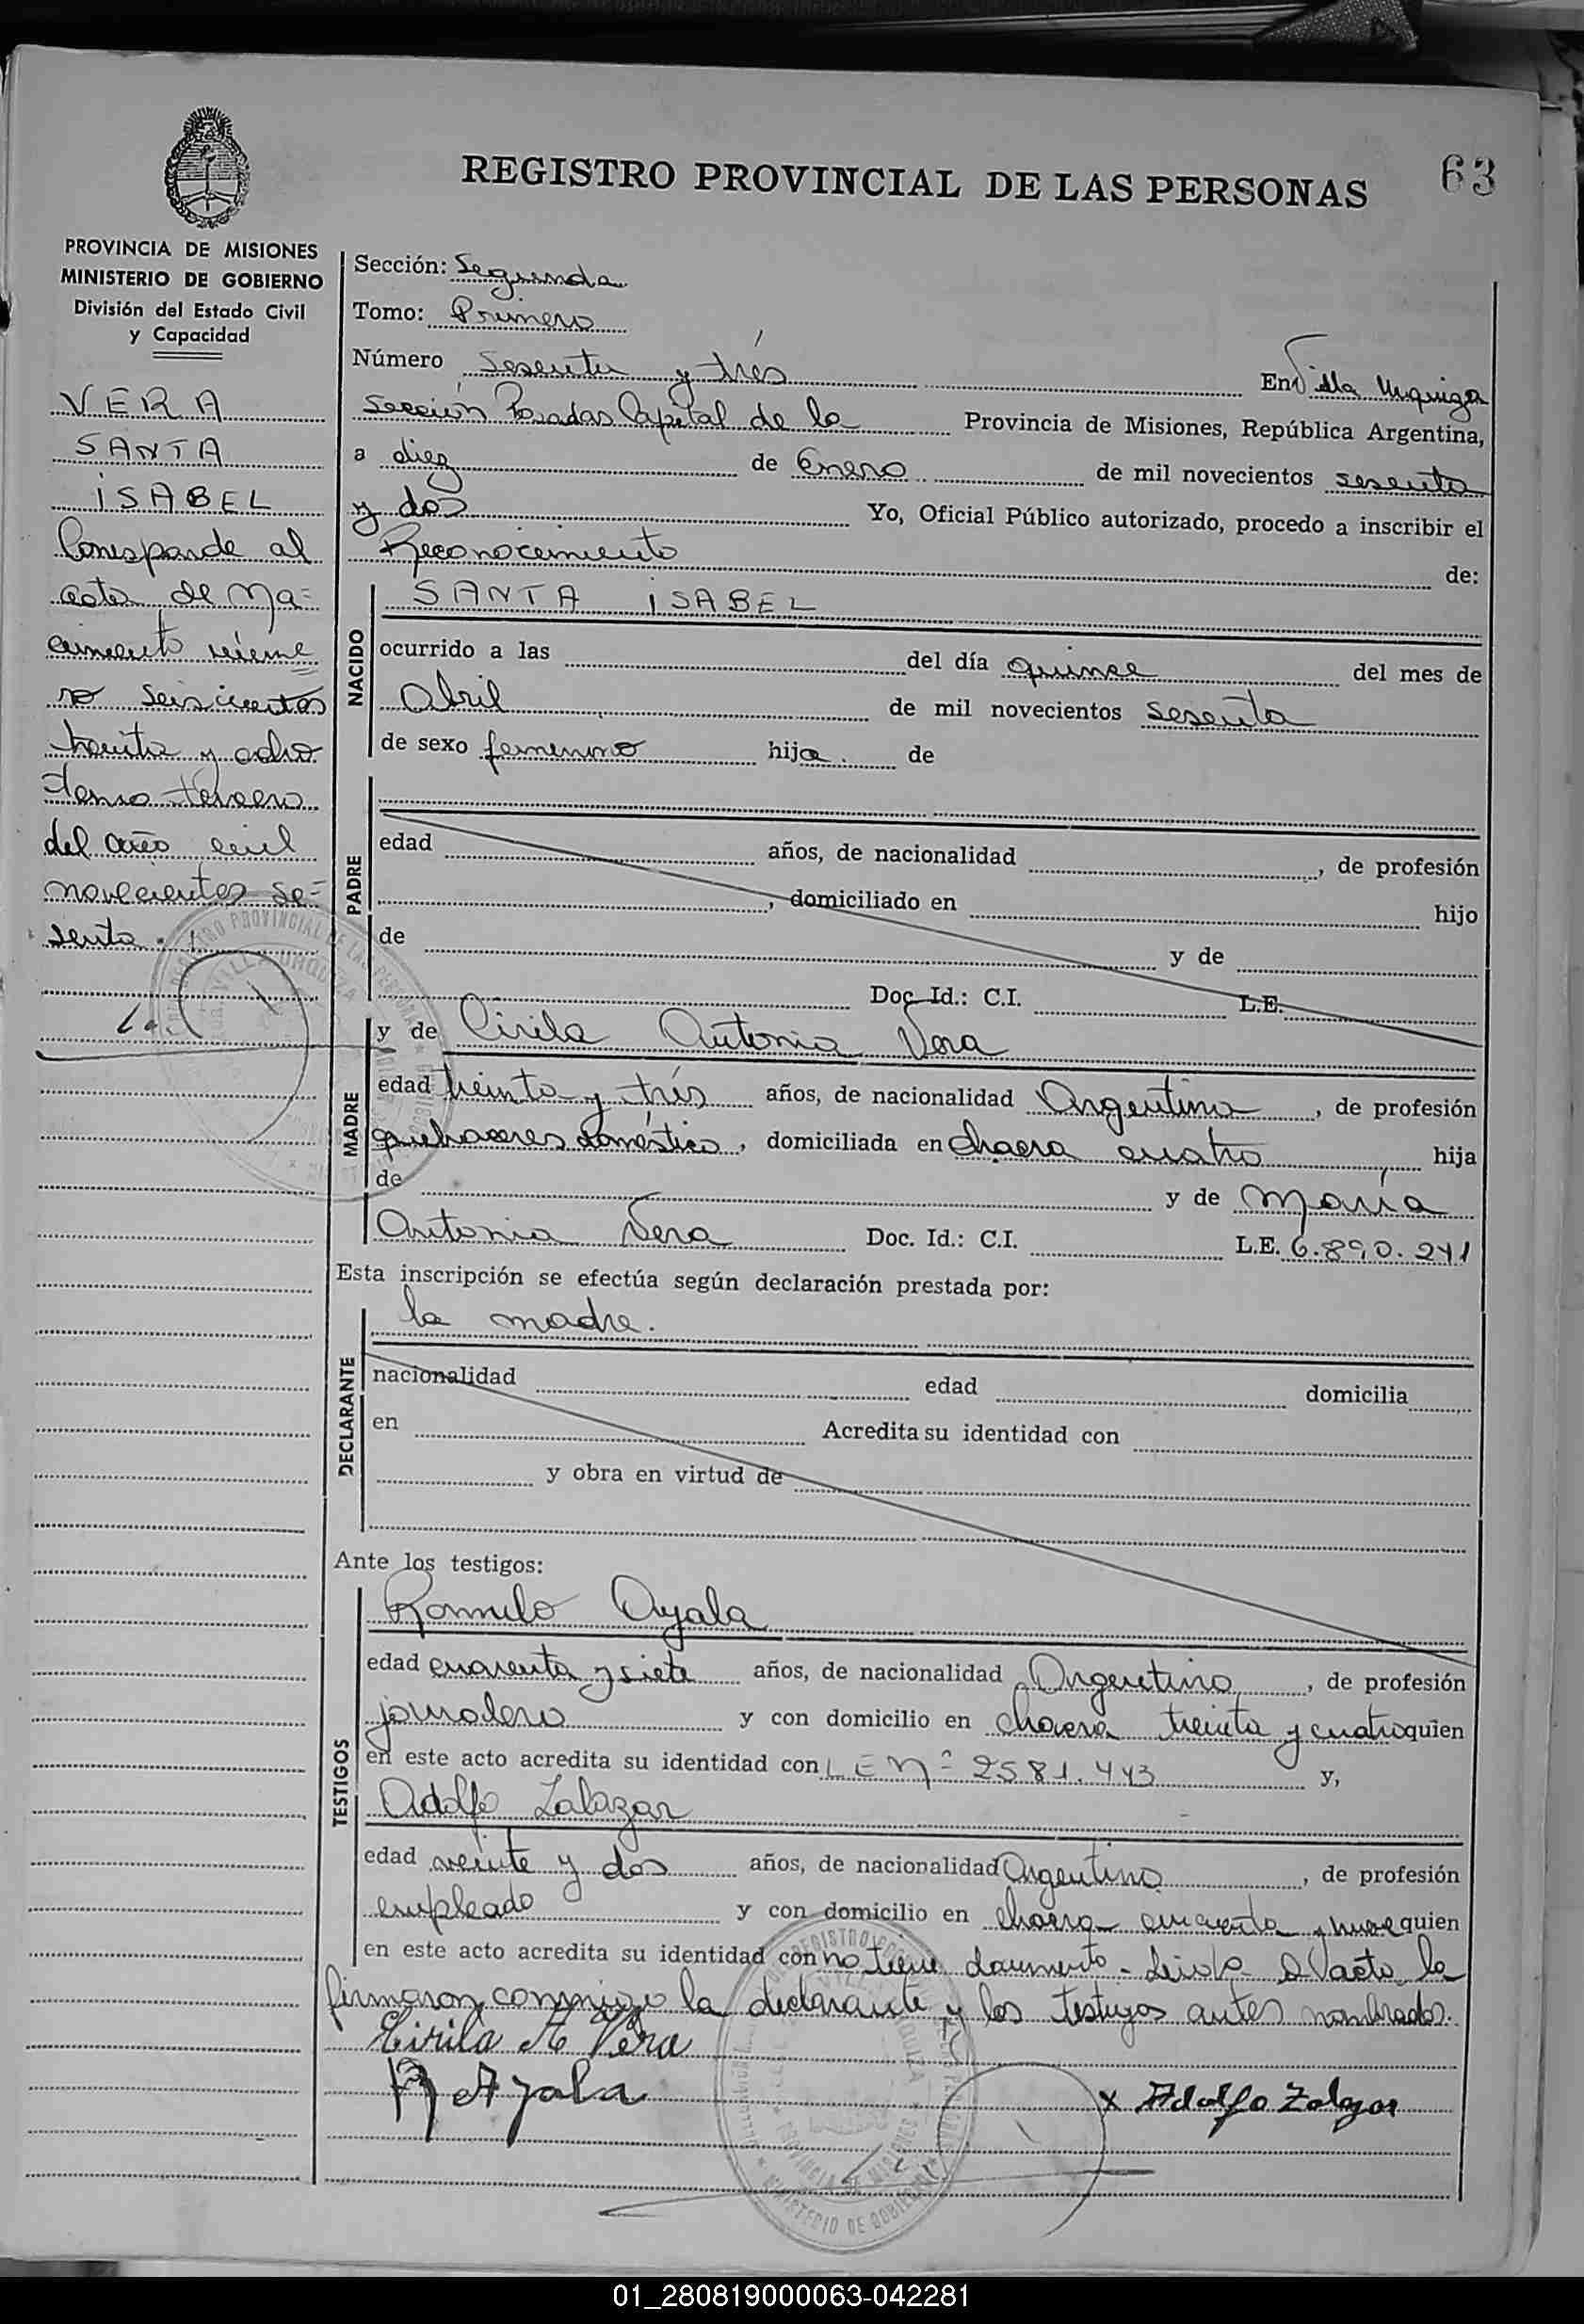 63
REGISTRO PROVINCIAL DE LAS PERSONAS
PROVINCIA DE MISIONES
MINISTERIO DE GOBIERNO
División del Estado Civil
y Capacidad
VERA
SANTA
ISABEL
Corresponde al
acta de Na=
cimiento núme
ro seiscientos
treinta y ocho
tomo tercero
del año mil
novecientos se=
senta.
Sección: Segunda
Tomo: Primero
Número Sesenta y trés En Villa Urquiza
Sección Posadas Capital de la Provincia de Misiones, República Argentina,
a diez de Enero de mil novecientos sesenta
y dos Yo, Oficial Público autorizado, procedo a inscribir el
Reconocimiento de:
NACIDO
SANTA ISABEL
ocurrido a las del día quince del mes de
Abril de mil novecientos sesenta
de sexo femenino hija de
PADRE
edad años, de nacionalidad , de profesión
, domiciliado en hijo
de y de
Doc. Id.: C.I. L.E.
MADRE
y de Cirila Antonia Vera
edad treinta y trés años, de nacionalidad Argentina , de profesión
quehaceres doméstico , domiciliada en chacra cuatro hija
de y de María
Antonia Vera Doc. Id.: C.I. L.E. 6.890.241
Esta inscripción se efectúa según declaración prestada por:
DECLARANTE
la madre.
nacionalidad edad domicilia
en Acredita su identidad con
y obra en virtud de
Ante los testigos:
TESTIGOS
Romulo Ayala
edad cuarenta y siete años, de nacionalidad Argentino , de profesión
jornalero y con domicilio en chacra treinta y cuatro quien
en este acto acredita su identidad con L E Nº 2581.443 y,
Adolfo Zalazar
edad veinte y dos años, de nacionalidad Argentino , de profesión
empleado y con domicilio en chacra cuarenta y nueve quien
en este acto acredita su identidad con no tiene documento - Leida el acta la
firmaron conmigo la declarante y los testigos antes nombrados.
Cirila A Vera
R Ayala
x Adolfo Zalazar
01_280819000063-042281